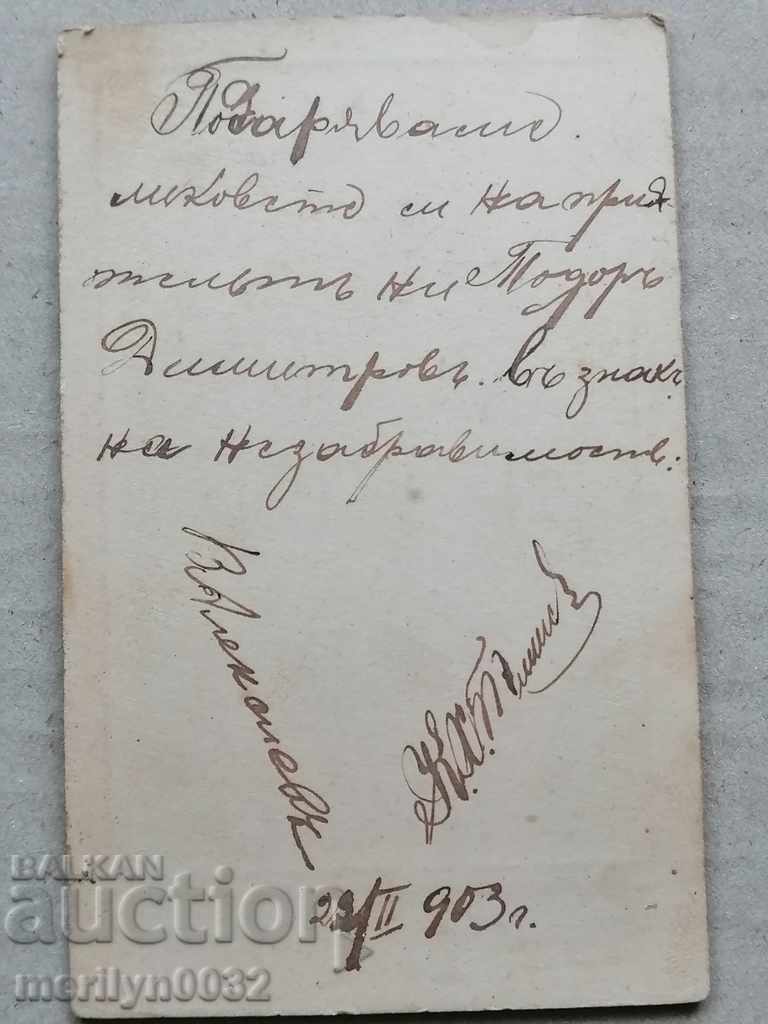 Подаряваме
ликовете си на прия-
тельтъ ни Тодоръ
Димитровъ. Въ знакъ
на незабравимость:
23/II 903 г.
BALKAN
auction
merilyn0032